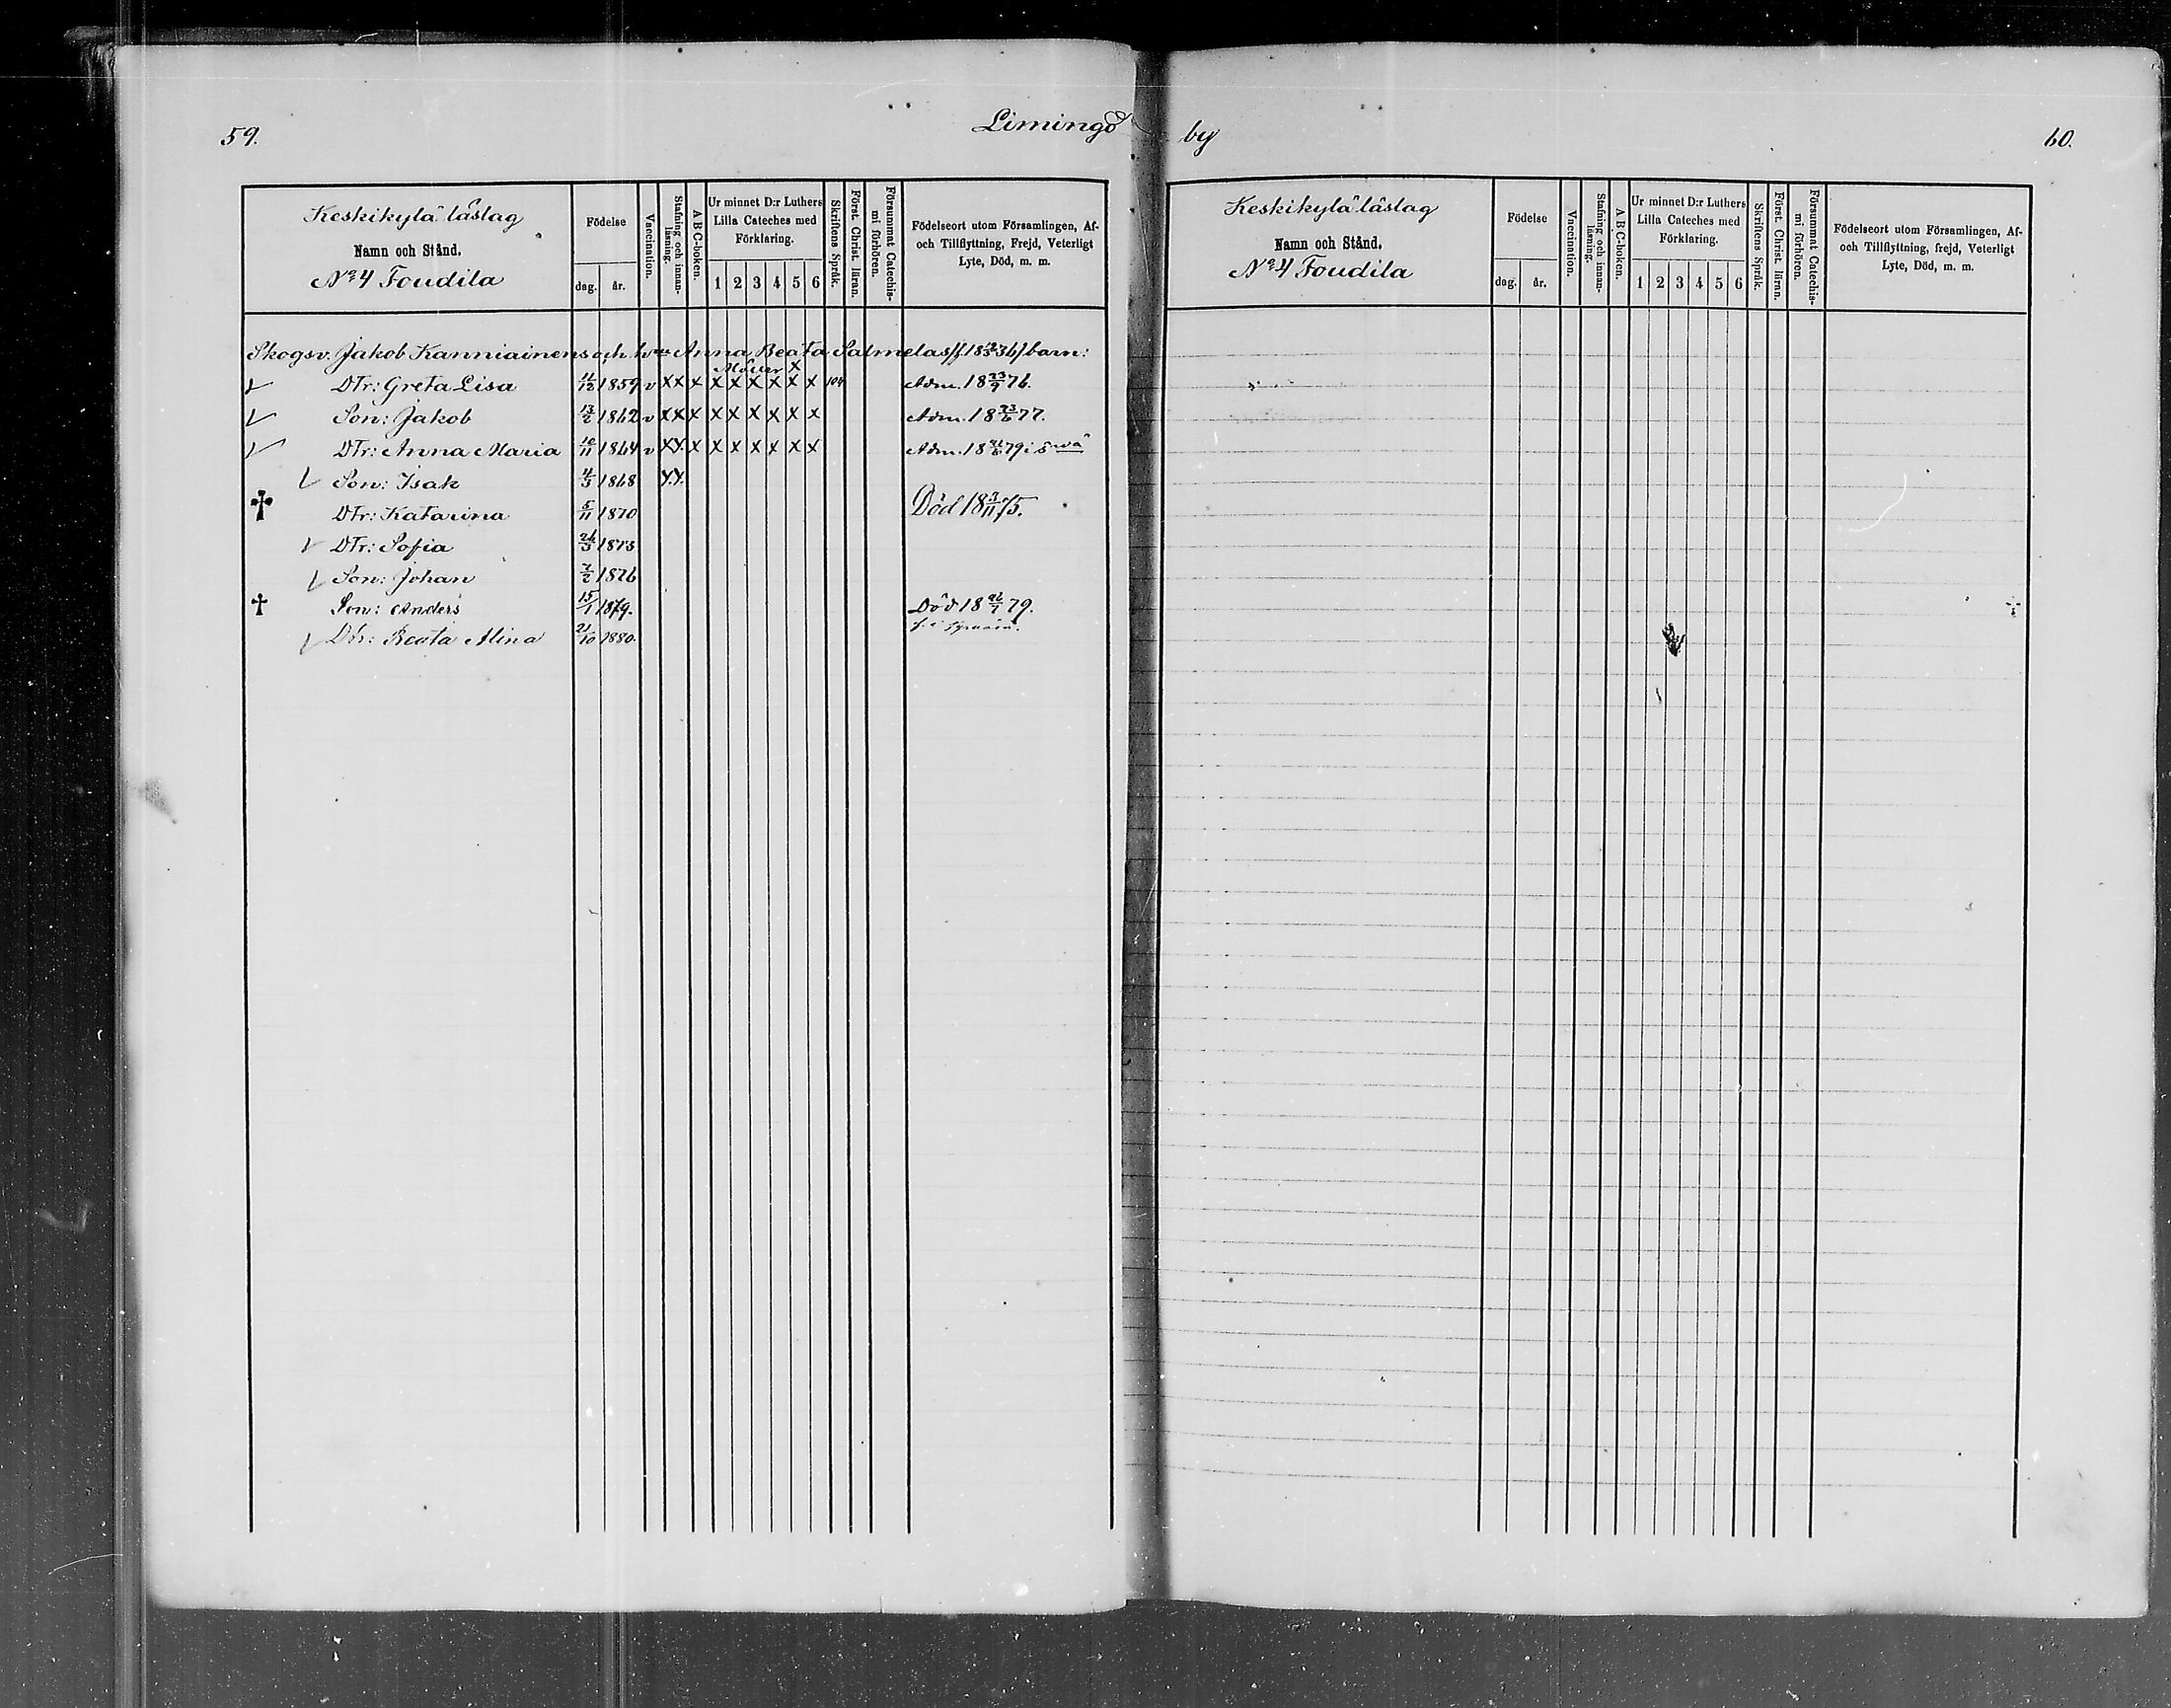 59.
Limingo by
60.
Keskikylä läslag
Namn och Stånd.
No 4 Foudila
Födelse
dag. år.
Vaccination.
Stafning och innan-
läsning.
A B C-boken.
Ur minnet D:r Luthers
Lilla Cateches med
Förklaring.
1 2 3 4 5 6
Skriftens Språk.
Först. Christ. läran.
Försummat Catechis-
mi förhören.
Födelseort utom Församlingen, Af-
och Tillflyttning, Frejd, Veterligt
Lyte, Död, m. m.
Skogsv. Jakob Kanniainens och Anna Beata Salmelas barn:
x
Dtr: Greta Lisa 11/12 1859 v x x x x x x x x x 104 Adm. 18 23/9 76.
Son: Jakob 13/2 1862 v x x x x x x x x x Adm. 18 23/6 77.
Dtr: Anna Maria 10/11 1864 v x x x x x x x x x Adm. 18 79 i
Son: Isak 4/5 1868 x x
† Dtr: Katarina 5/11 1870 Död 18 3/11 75.
Dtr: Sofia 1873
Son: Johan 7/2 1876
† Son: Anders 15/1 1879. Död 18 79.
Dtr: Beata Alina 21/10 1880.
Keskikylä läslag
Namn och Stånd.
No 4 Foudila
Födelse
dag. år.
Vaccination.
Stafning och innan-
läsning.
A B C-boken.
Ur minnet D:r Luthers
Lilla Cateches med
Förklaring.
1 2 3 4 5 6
Skriftens Språk.
Först. Christ. läran.
Försummat Catechis-
mi förhören.
Födelseort utom Församlingen, Af-
och Tillflyttning, frejd, Veterligt
Lyte, Död, m. m.